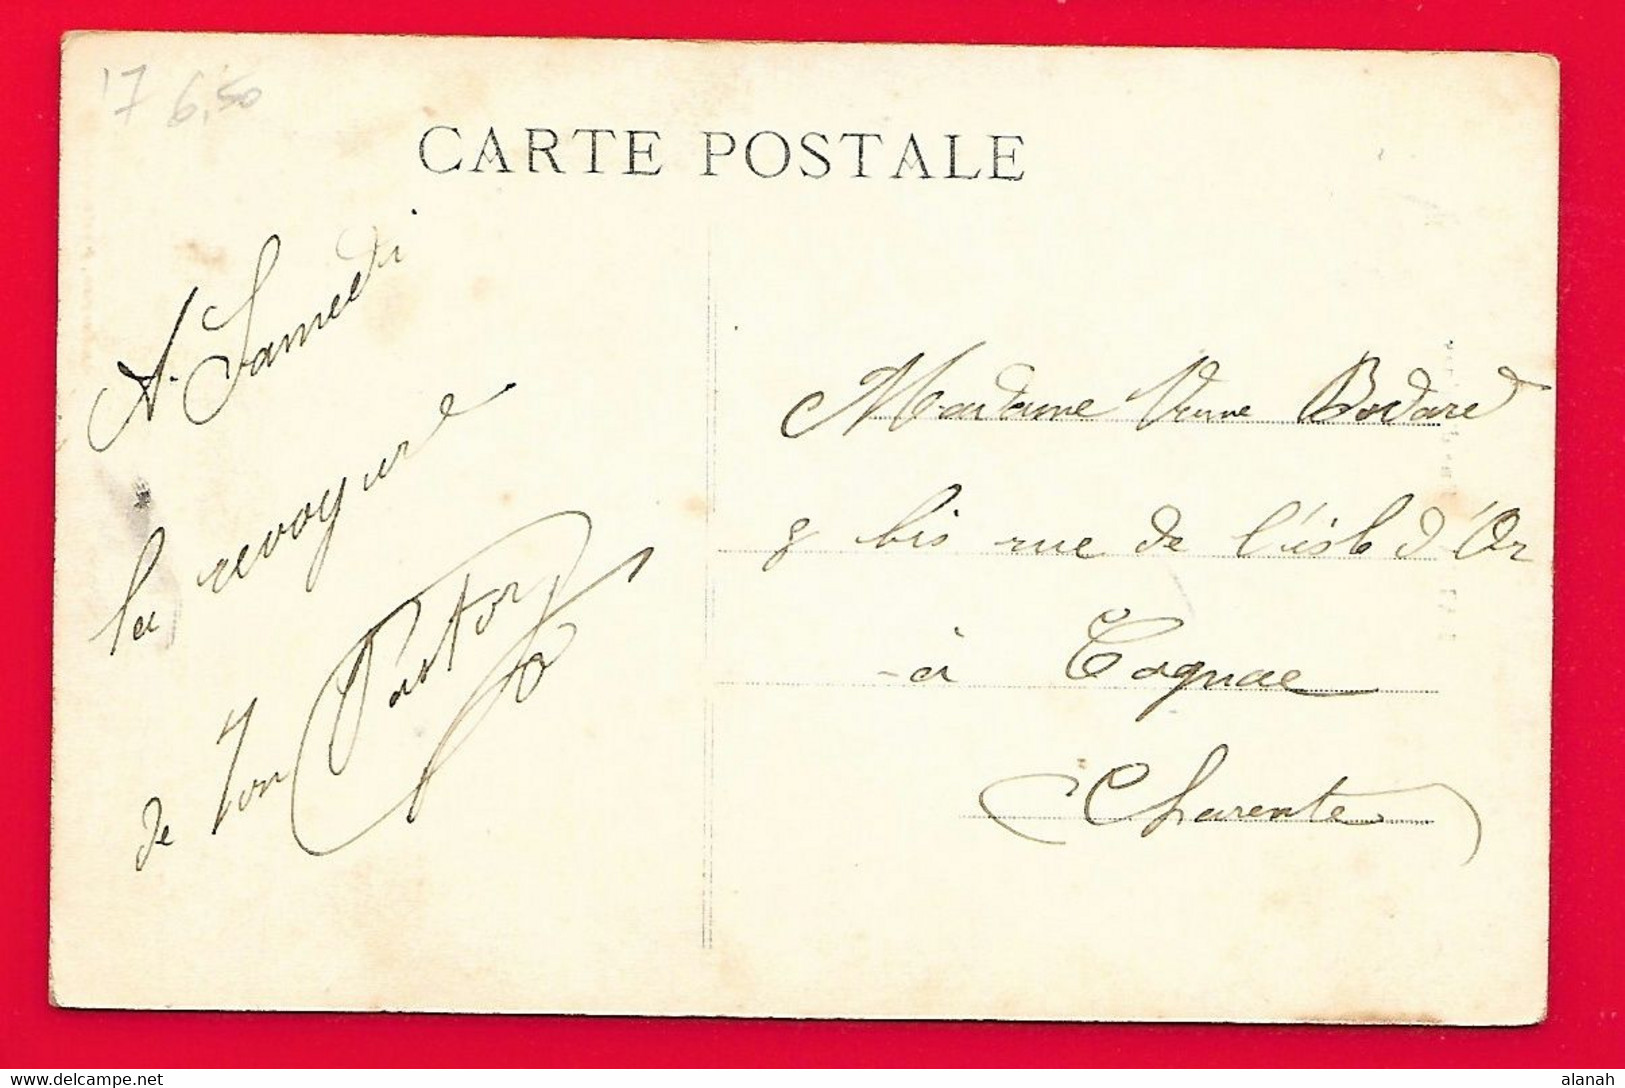 17 6,50
CARTE POSTALE
A Samedi
la revoyure
de Ton
Madame Veuve Bodard
8 bis rue de l'isle d'Or
à Cognac
Charente
alanah